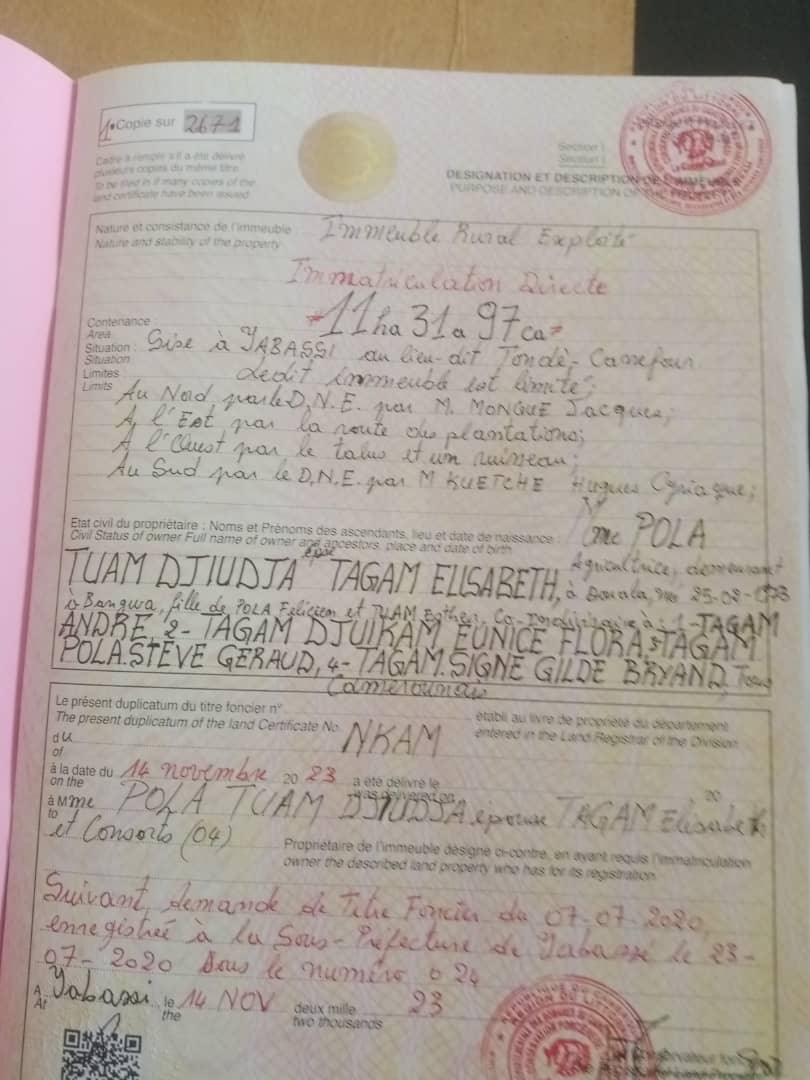 1 Copie sur 2671
Cadre à remplir s'il a été délivré
plusieurs copies du même titre
To be filled in if many copies of the
land certificate have been issued
Section I
Section I
DESIGNATION ET DESCRIPTION DE L'IMMEUBLE
PURPOSE AND DESCRIPTION OF THE
Nature et consistance de l'immeuble : Immeuble Rural Exploité
Nature and stability of the property
Immatriculation Directe
Contenance : =11ha 31a 97ca=
Area
Situation : Sise à YABASSI au lieu-dit Tondè-Carrefour
Situation
Limites : Ledit immeuble est limité ;
Limits
Au Nord par le D.N.E. par M. MONGUE Jacques ;
A l'Est par la route des plantations ;
A l'Ouest par le talus et un ruisseau ;
Au Sud par le D.N.E. par M KUETCHE Hugues Cyriaque ;
Etat civil du propriétaire : Noms et Prénoms des ascendants, lieu et date de naissance : Mme POLA
Civil Status of owner Full name of owner and ancestors, place and date of birth
TUAM DJIUDJA épse TAGAM ELISABETH, Agricultrice, demeurant
à Douala, née 25-02-
à Bangwa, fille de POLA Félicien et TUAM Esther, Co-indivisaire à : 1-TAGAM
ANDRE, 2- TAGAM DJUIKAM EUNICE FLORA, 3 TAGAM
POLA STEVE GERAUD, 4- TAGAM SIGNE GILDE BRYAND, Tous
Camerounais
Le présent duplicatum du titre foncier n°
The present duplicatum of the land Certificate No.
établi au livre de propriété du département
entered in the Land Registrar of the Division
du NKAM
of
à la date du 14 novembre 20 23 a été délivré le 20
on the was delivered on
à Mme POLA TUAM DJIUDJA épouse TAGAM Elisabeth
to
et Consorts (04)
Propriétaire de l'immeuble désigné ci-contre, en ayant requis l'immatriculation
owner the described land property who has for its registration
Suivant demande de Titre Foncier du 07-07-2020,
enregistrée à la Sous-Préfecture de Yabassi le 23-
07-2020 sous le numéro 024
A Yabassi le 14 NOV deux mille 23
At the two thousands